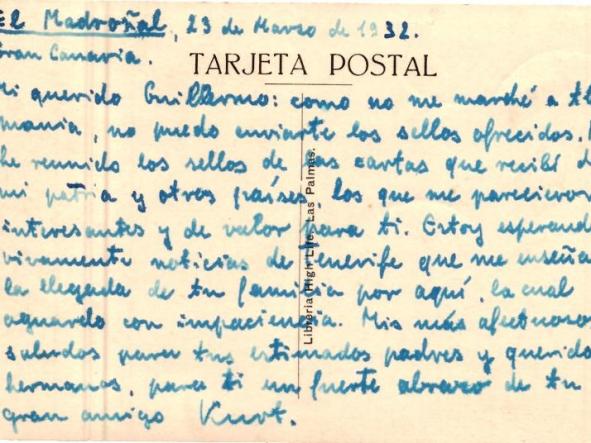 El Madroñal, 23 de Marzo de 1932.
Gran Canaria.
TARJETA POSTAL
Mi querido Guillermo: como no me marché a Ale
mania, no puedo enviarte los sellos ofrecidos.
he reunido los sellos de las cartas que recibí de
mi patria y otros países, los que me parecieron
interesantes y de valor para ti. Estoy esperando
vivamente noticias de Tenerife que me enseñan
la llegada de tu familia por aquí, la cual
aguardo con impaciencia. Mis más afectuosos
saludos para tus estimados padres y queridos
hermanos, para ti un fuerte abrazo de tu
gran amigo Kurt.
Librería High Life, Las Palmas.